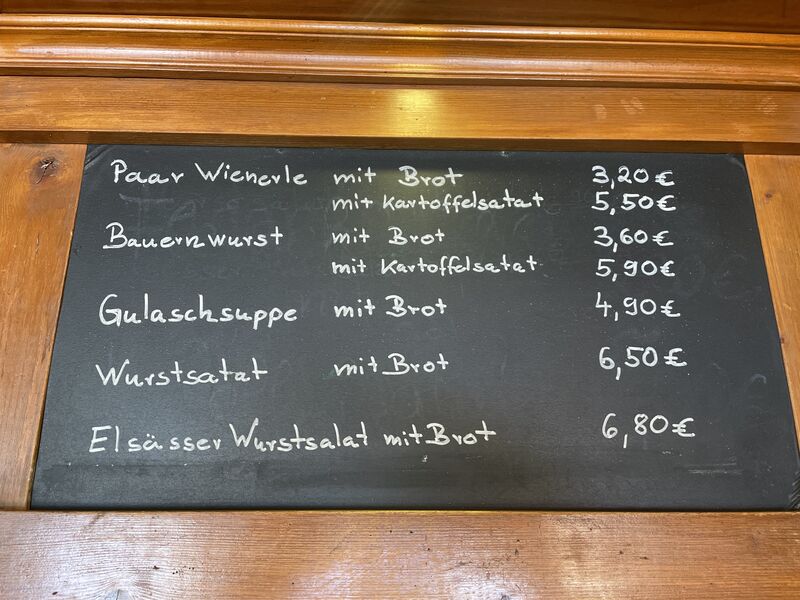 Paar Wienerle mit Brot 3,20€
mit Kartoffelsatat 5,50€
Bauernwurst mit Brot 3,60€
mit Kartoffelsatat 5,90€
Gulaschsuppe mit Brot 4,90€
Wurstsatat mit Brot 6,50€
Elsässer Wurstsalat mit Brot 6,80€